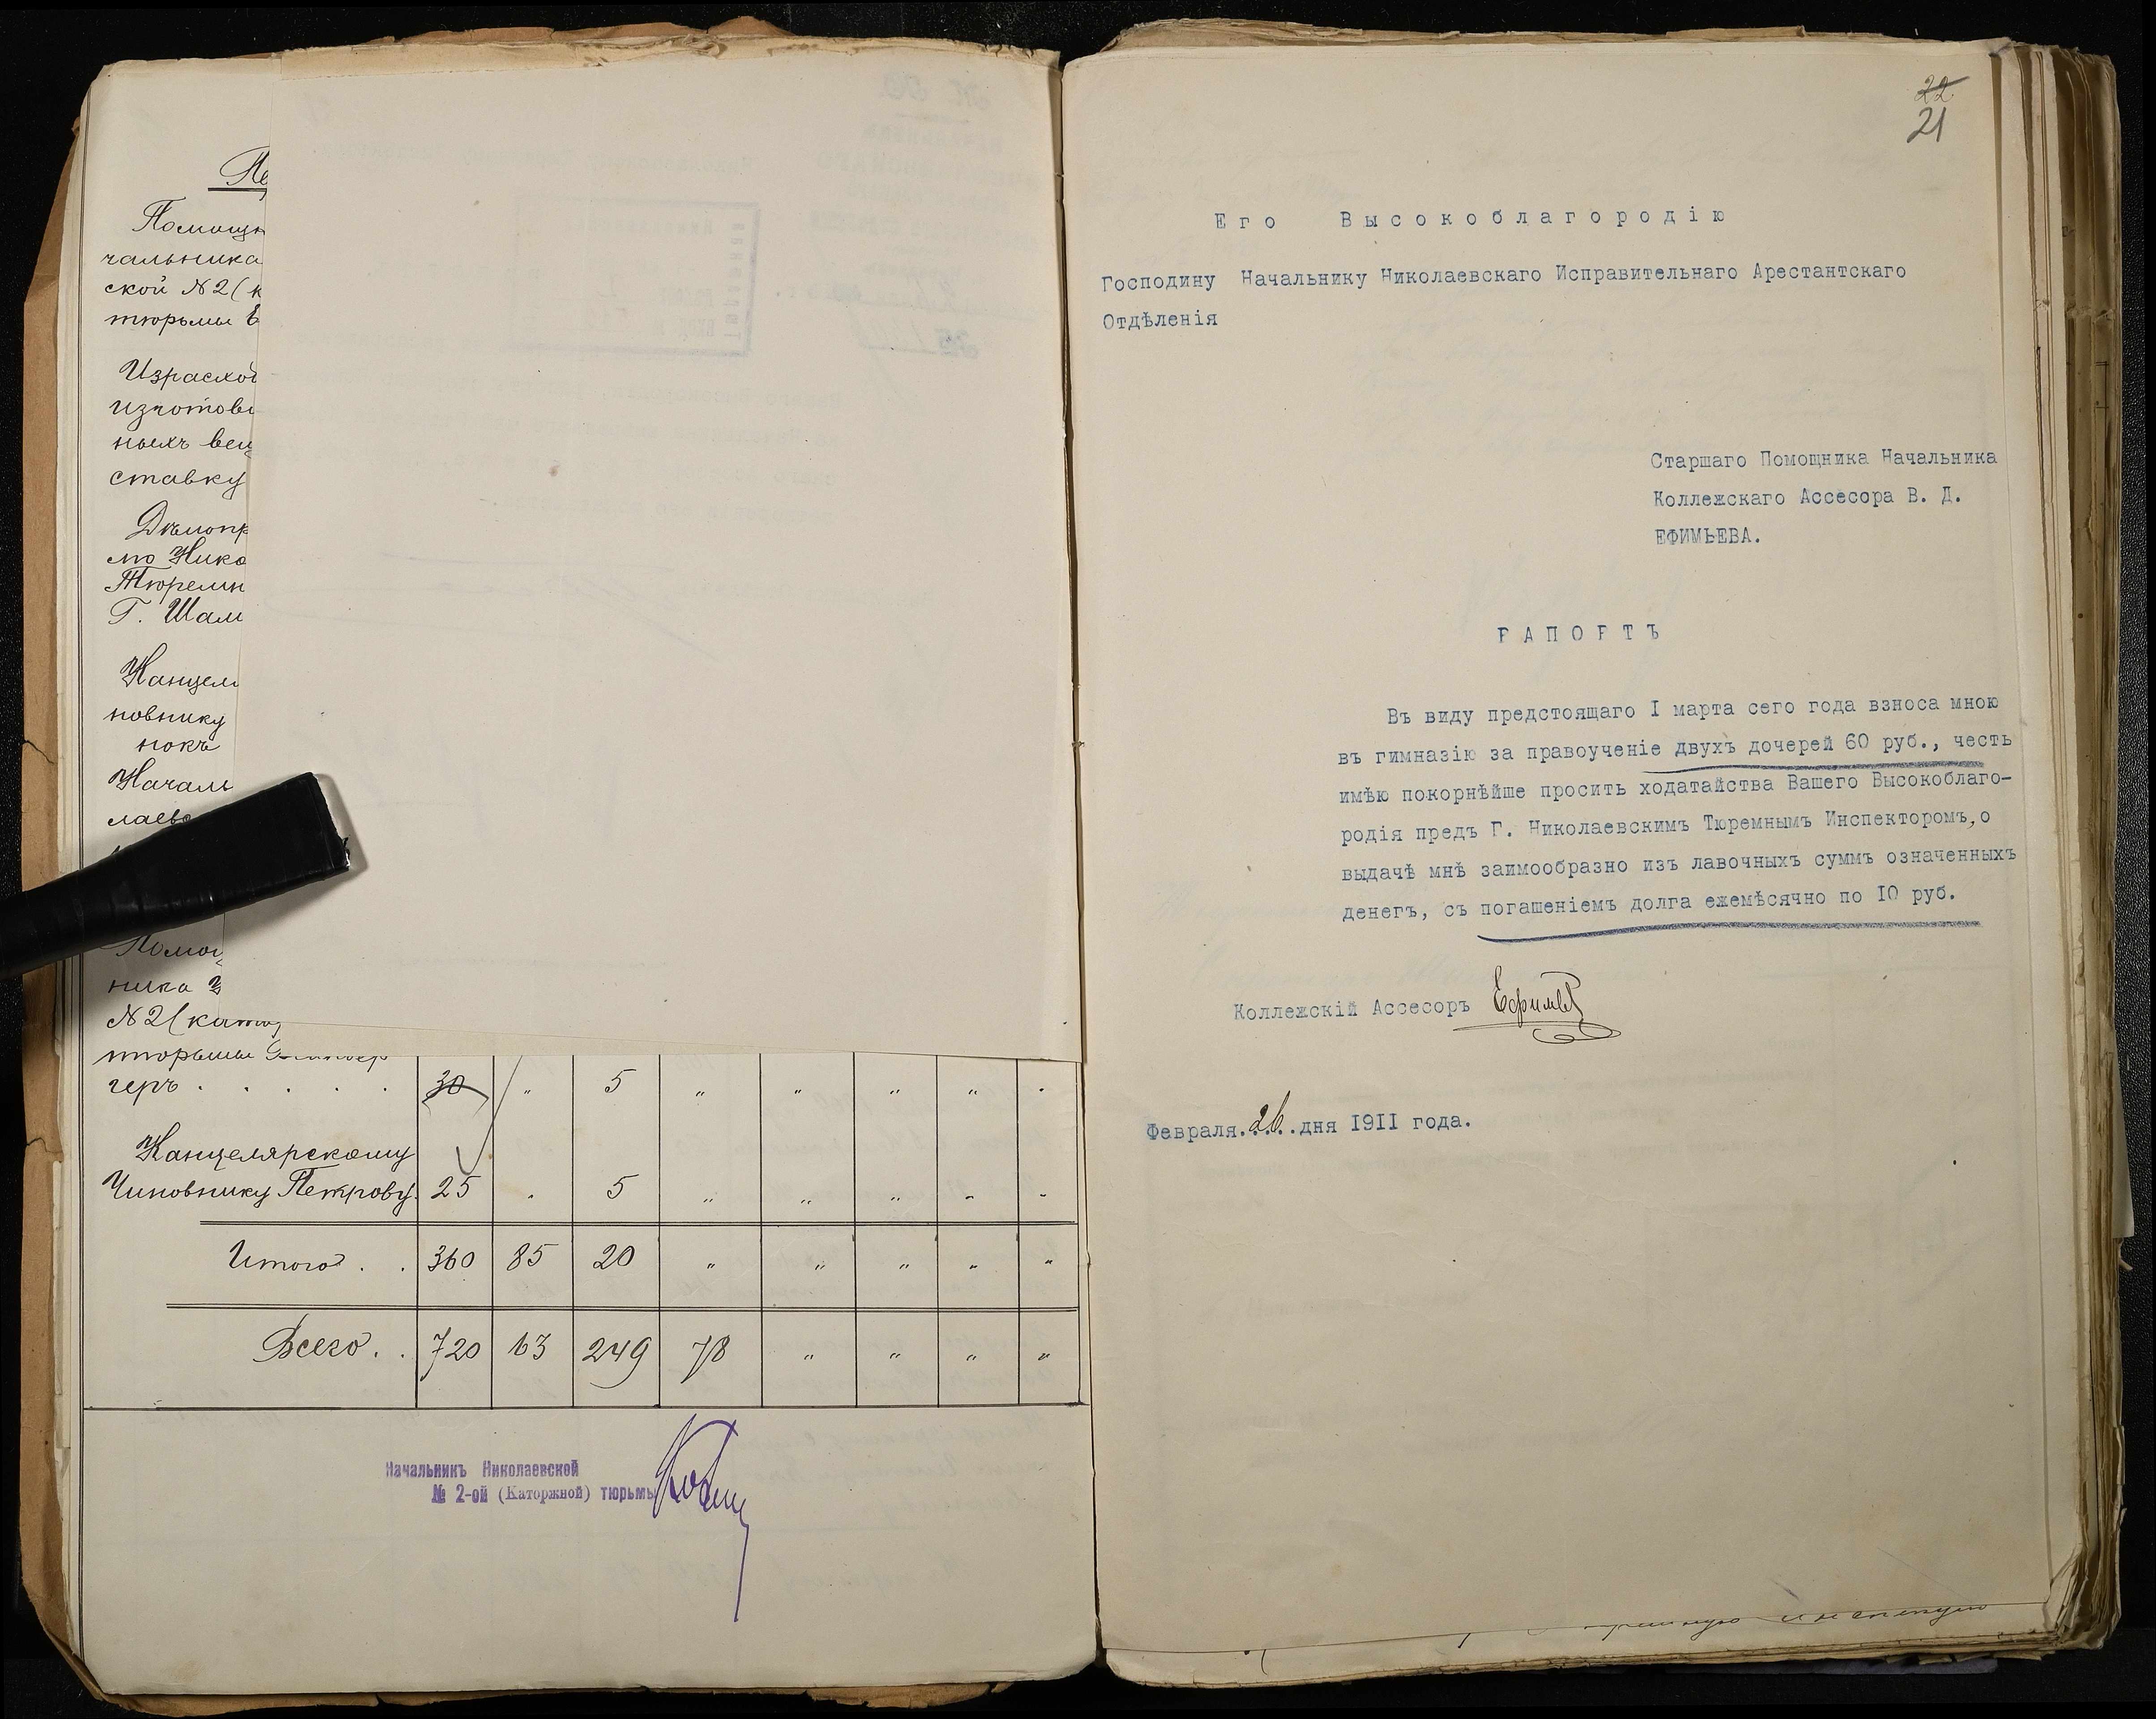 Пе
Помощн
чальника
ской N2(к
тюрьмы
Израсход
изготов
ныхъ вещ
ставку
Дѣлопр
Нико
Тюремн
Г. Шам
Канцел
новнику
нокъ
Началь
лаевс
Помощ
ника
N2(кат
тюрьмы
геръ . . . . . 30 " 5 " " " " .
Канцелярскому
Чиновнику Петрову. 25 . 5 " " " " "
Итого . . 360 85 20 " " " " "
Всего . . 720 63 249 78 " " " "
Начальникъ Николаевской
№ 2-ой (Каторжной) тюрьмы
22
21
Его Высокоблагородію
Господину Начальнику Николаевскаго Исправительнаго Арестантскаго
Отдѣленія
Старшаго Помощника Начальника
Коллежскаго Ассесора В. Д.
ЕФИМЬЕВА.
РАПОРТЪ
Въ виду предстоящаго I марта сего года взноса мною
въ гимназію за правоученіе двухъ дочерей 60 руб., честь
имѣю покорнѣйше просить ходатайства Вашего Высокоблаго-
родія предъ Г. Николаевскимъ Тюремнымъ Инспекторомъ, о
выдачѣ мнѣ заимообразно изъ лавочныхъ суммъ означенныхъ
денегъ, съ погашеніемъ долга ежемѣсячно по I0 руб.
Коллежскій Ассесоръ Ефимьев
Февраля.26.дня I9II года.